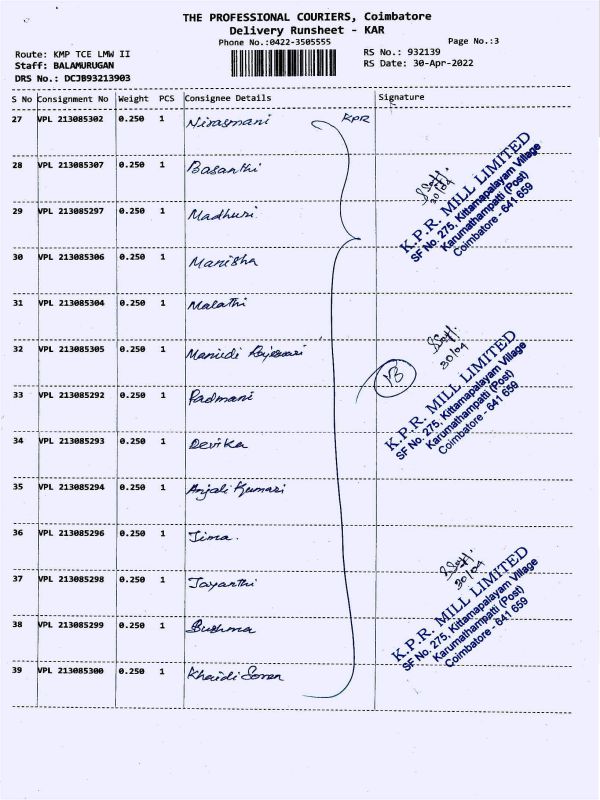 THE PROFESSIONAL COURIERS, Coimbatore
Delivery Runsheet - KAR
Phone No.:0422-3505555
Page No.:3
Route: KMP TCE LMW II
RS No.: 932139
Staff: BALAMURUGAN
RS Date: 30-Apr-2022
DRS No.: DCJB93213903
S No Consignment No Weight PCS Consignee Details Signature
27 VPL 213085302 0.250 1 Nirasmani KPR
28 VPL 213085307 0.250 1 Basanthi
30/04
K.P.R. MILL LIMITED
SF No. 275, Kittamapalayam Village
Karumathampatti (Post)
Coimbatore - 641 659
29 VPL 213085297 0.250 1 Madhuri
30 VPL 213085306 0.250 1 Manisha
31 VPL 213085304 0.250 1 Malathi
32 VPL 213085305 0.250 1 Rajeswari
30/04
K.P.R. MILL LIMITED
SF No. 275, Kittamapalayam Village
Karumathampatti (Post)
Coimbatore - 641 659
13
33 VPL 213085292 0.250 1 Padmani
34 VPL 213085293 0.250 1 Devika
35 VPL 213085294 0.250 1 Anjali Kumari
36 VPL 213085296 0.250 1 Jima.
30/04
K.P.R. MILL LIMITED
SF No. 275, Kittamapalayam Village
Karumathampatti (Post)
Coimbatore - 641 659
37 VPL 213085298 0.250 1 Jayanthi
38 VPL 213085299 0.250 1 Bushma
39 VPL 213085300 0.250 1 Khaidi Soren